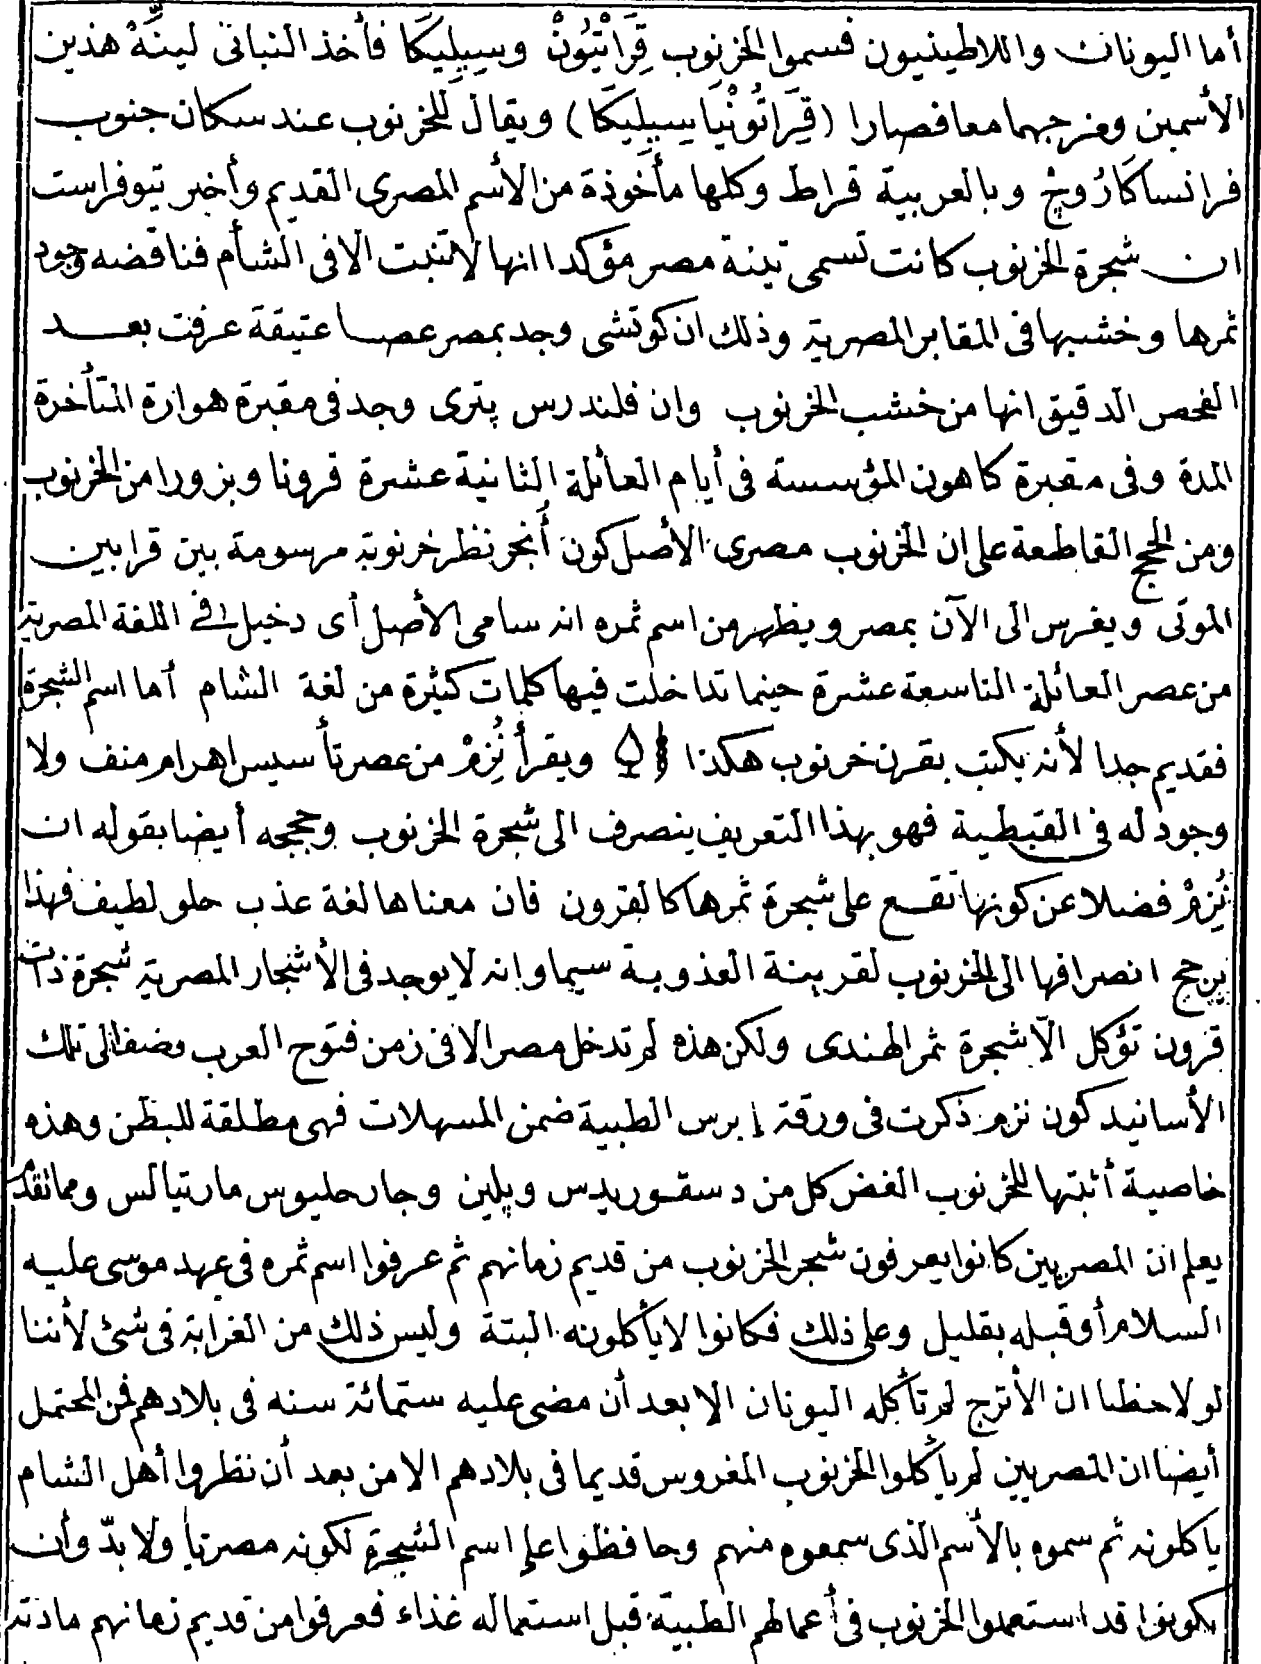 أما اليونان واللاطينيون فسموا الخرنوب قِرَاتْيُونْ وسِيلِيكَا فأخذ النباتى لينَّهْ هذين
الأسمين ومزجهما معا فصارا (قِرَاتُونْيَا سِيلِيكَا) ويقال للخرنوب عند سكان جنوب
فرانسا كَارُوجْ وبالعربية قراط وكلها مأخوذة من الأسم المصرى القديم وأخبر تيوفراست
ان شجرة الخرنوب كانت تسمى تينة مصر مؤكدا انها لا تنبت الا فى الشأم فناقضه وجود
ثمرها وخشبها فى المقابر المصرية وذلك ان كوتشى وجد بمصر عصا عتيقة عرفت بعد
الفحص الدقيق انها من خشب الخرنوب وان فلندرس پترى وجد فى مقبرة هوارة المتأخرة
المدة وفى مقبرة كاهون المؤسسة فى أيام العائلة الثانية عشرة قرونا وبزورا من الخرنوب
ومن الحجج القاطعة على ان الخرنوب مصرى الأصل كون أُنجر نظر خرنوبة مرسومة بين قرابين
الموتى ويغرس الى الآن بمصر ويظهر من اسم ثمره انه سامى الأصل أى دخيل فى اللغة المصرية
من عصر العائلة التاسعة عشرة حينما تداخلت فيها كلمات كثيرة من لغة الشام أما اسم الشجرة
فقديم جدا لأنه يكتب بقرن خرنوب هكذا ويقرأ نُزِمْ من عصر تأسيس اهرام منف ولا
وجود له فى القبطية فهو بهذا التعريف ينصرف الى شجرة الخرنوب وحججه أيضا بقوله ان
نُزِمْ فضلا عن كونها تقع على شجرة ثمرها كالقرون فان معناها لغة عذب حلو لطيف فهذا
يرجح انصرافها الى الخرنوب لقرينة العذوبة سيما وانه لا يوجد فى الأشجار المصرية شجرة ذات
قرون تؤكل الّا شجرة ثمر الهندى ولكن هذه لم تدخل مصر الا فى زمن فتوح العرب وضف الى تلك
الأسانيد كون نزم ذكرت فى ورقة إبرس الطبية ضمن المسهلات فهى مطلقة للبطن وهذه
خاصية أثبتها للخرنوب الغض كل من دسقوريدس وپلين وجارجليوس مارتيالس ومما تقدم
يعلم ان المصريين كانوا يعرفون شجر الخرنوب من قديم زمانهم ثم عرفوا اسم ثمره فى عهد موسى عليه
السلام أو قبله بقليل وعلى ذلك فكانوا لا يأكلونه البتة وليس ذلك من الغرابة فى شئ لأننا
لو لاحظنا ان الأترج لم تأكله اليونان الا بعد أن مضى عليه ستمائة سنه فى بلادهم فمن المحتمل
أيضا ان المصريين لم يأكلوا الخرنوب المغروس قديما فى بلادهم الا من بعد أن نظروا أهل الشام
ياكلونه ثم سموه بالأسم الذى سمعوه منهم وحافظوا على اسم الشجرة لكونه مصريا ولا بدّ وأن
يكونوا قد استعملوا الخرنوب فى أعمالهم الطبية قبل استعماله غذاء فعرفوا من قديم زمانهم مادته